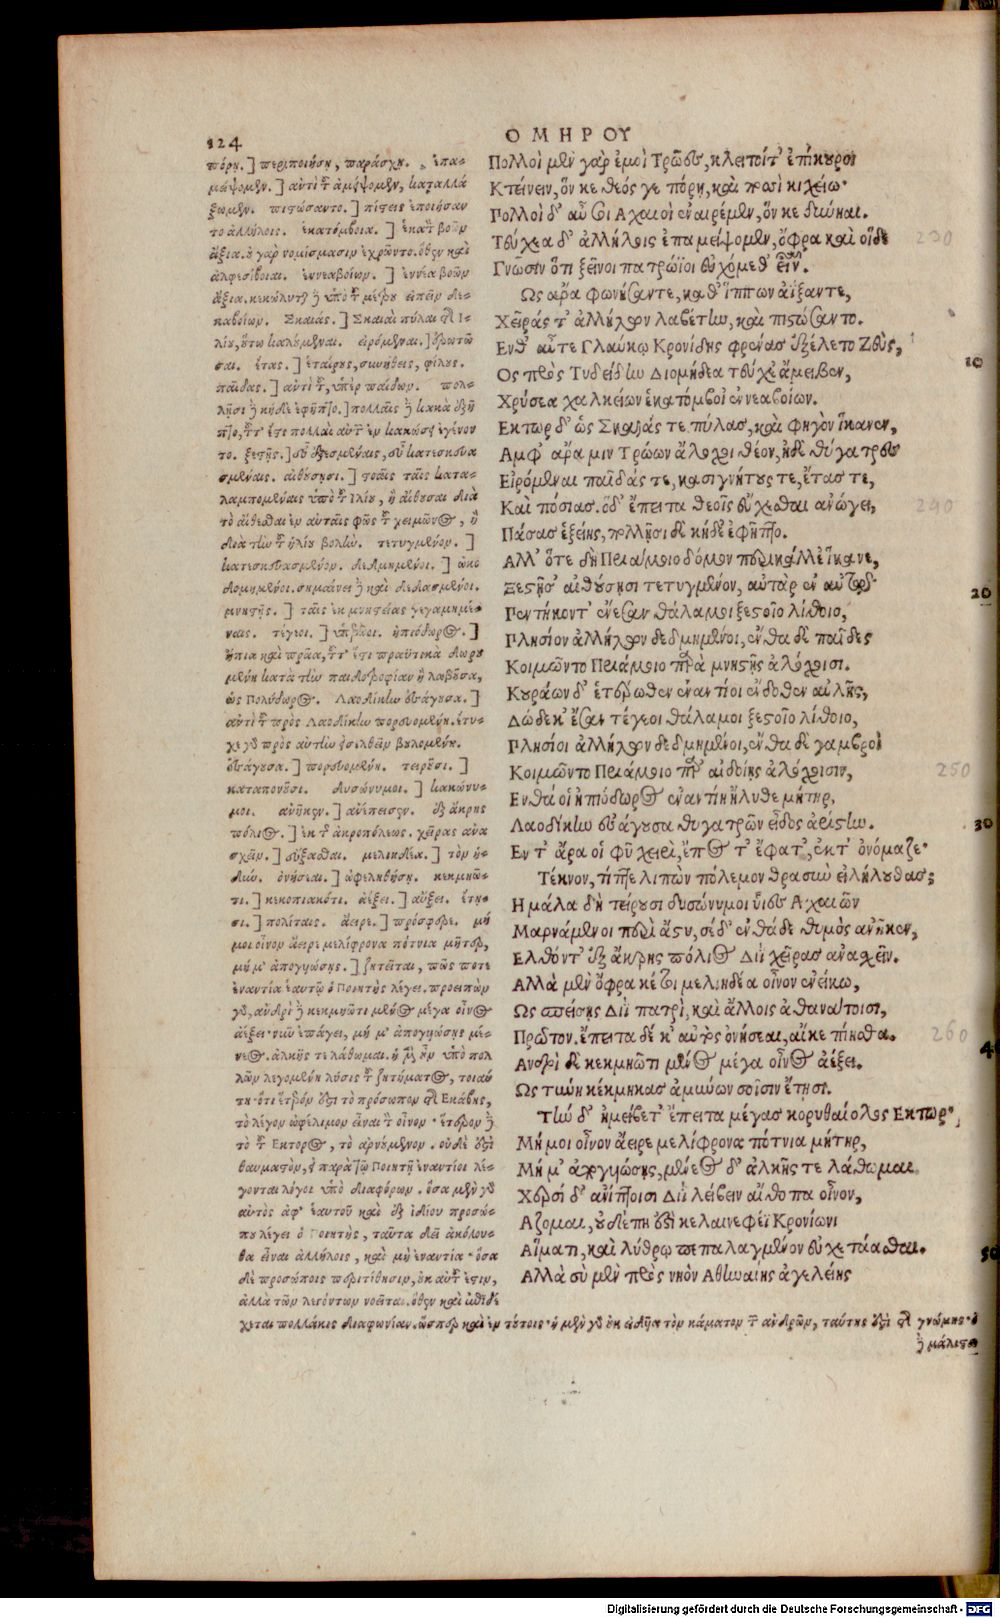 124
ΟΜΗΡΟΥ
πόρῃ.] περιποιήσῃ, παράσχῃ. ἐπα-
μείψομεν.] ἀντὶ τοῦ ἀμείψομεν, καταλλά
ξωμεν. πιστώσαντο.] πίστεις ἐποιήσαν
το ἀλλήλοις. ἑκατόμβοια.] ἑκατὸν βοῶν
ἄξια. οὐ γὰρ νομίσμασιν ἐχρῶντο. ὅθεν καὶ
ἀλφεσίβοιαι. ἐννεαβοίων.] ἐννέα βοῶν
ἄξια. κεκώλυται δὲ ὑπὸ τοῦ μέτρου εἰπεῖν δε-
καβοίων. Σκαιάς.] Σκαιαὶ πύλαι τῆς Ἰ-
λίου, οὕτω καλούμεναι. εἰρόμεναι.] ἐρωτῶ
σαι. ἔτας.] ἑταίρους, συνήθεις, φίλους.
παῖδας.] ἀντὶ τοῦ, ὑπὲρ παίδων. πολ-
λῇσι δὲ κήδε' ἐφῆπτο.] πολλαῖς δὲ κακὰ ἐξῆ
πτο, τουτέστι πολλαὶ αὐτῶν ἐν κακώσει ἐγένον
το. ξεστῇς.] εὖ ἐξεσμέναις, εὖ κατεσκευα
σμέναις. αἰθούσῃσι.] στοαῖς ταῖς κατα-
λαμπομέναις ὑπὸ τοῦ ἡλίου, ἢ αἴθουσαι διὰ
τὸ αἴθεσθαι ἐν αὐταῖς φῶς τοῦ χειμῶνος, ἢ
διὰ τὴν τοῦ ἡλίου βολήν. τετυγμένον.]
κατεσκευασμένον. δεδμημένοι.] ᾠκο
δομημένοι. σημαίνει δὲ καὶ δεδασμένοι.
μνηστῇς.] ταῖς ἐκ μνηστείας γεγαμημέ-
ναις. τέγεοι.] ὑπερῷοι. ἠπιόδωρος.]
ἤπια καὶ πρᾶα, τουτέστι πραϋντικὰ δωρου
μένη κατὰ τὴν παιδοτροφίαν ἢ λαβοῦσα,
ὡς Πολύδωρος. Λαοδίκην ἐσάγουσα.]
ἀντὶ τοῦ πρὸς Λαοδίκην πορευομένη. ἔτυ-
χε γὰρ πρὸς αὐτὴν εἰσελθεῖν βουλομένη.
ἐσάγουσα.] πορευομένη. τείρουσι.]
καταπονοῦσι. δυσώνυμοι.] κακώνυ-
μοι. ἀνῆκεν.] ἀνέπεισεν. ἐξ ἄκρης
πόλιος.] ἐκ τῆς ἀκροπόλεως. χεῖρας ἀνα
σχεῖν.] εὔξασθαι. μελιηδέα.] τὸν ἡ-
δύν. ὀνήσεαι.] ὠφεληθήσῃ. κεκμηῶ-
τι.] κεκοπιακότι. ἀέξει.] αὔξει. ἔτῃ-
σι.] πολίταις. ἄειρε.] πρόσφερε. μή
μοι οἶνον ἄειρε μελίφρονα πότνια μῆτερ,
μή μ' ἀπογυιώσῃς.] ζητεῖται, πῶς ποτε
ἐναντία ἑαυτῷ ὁ Ποιητὴς λέγει. προειπὼν
γὰρ, ἀνδρὶ δὲ κεκμηῶτι μένος μέγα οἶνος
ἀέξει· νῦν ἐπάγει, μή μ' ἀπογυιώσῃς μέ-
νεος. ἀλκῆς τε λάθωμαι. ἡ μὲν οὖν ὑπὸ πολ
λῶν λεγομένη λύσις τοῦ ζητήματος, τοιαύ
τη· ὅτι ἕτερόν ἐστι τὸ πρόσωπον τῆς Ἑκάβης,
τὸ λέγον ὠφέλιμον εἶναι τὸν οἶνον· ἕτερον δὲ
τὸ τοῦ Ἕκτορος, τὸ ἀρνούμενον. οὐδέ ἐστι
θαυμαστὸν, εἰ παρὰ τῷ Ποιητῇ ἐναντίοι λέ-
γονται λόγοι ὑπὸ διαφόρων. ὅσα μὲν γὰρ
αὐτὸς ἀφ' ἑαυτοῦ καὶ ἐξ ἰδίου προσώ-
που λέγει ὁ Ποιητὴς, ταῦτα δεῖ ἀκόλου-
θα εἶναι ἀλλήλοις, καὶ μὴ ἐναντία· ὅσα
δὲ προσώποις περιτίθησιν, οὐκ αὐτοῦ ἐστιν,
ἀλλὰ τῶν λεγόντων νοεῖται. ὅθεν καὶ ἐπιδέ
χεται πολλάκις διαφωνίαν. ὥσπερ καὶ ἐν τούτοις· ἡ μὲν γὰρ οὐκ εἰδυῖα τὸν κάματον τῶν ἀνδρῶν, ταύτης ἐστὶ τῆς γνώμης· ὁ
δὲ μάλιστα
Πολλοὶ μὲν γὰρ ἐμοὶ Τρῶες, κλειτοί τ' ἐπίκουροι
Κτείνειν, ὅν κε θεός γε πόρῃ, καὶ ποσὶ κιχείω·
Πολλοὶ δ' αὖ σοι Ἀχαιοὶ ἐναιρέμεν, ὅν κε δύνηαι.
Τεύχεα δ' ἀλλήλοις ἐπαμείψομεν, ὄφρα καὶ οἵδε
Γνῶσιν ὅτι ξεῖνοι πατρώϊοι εὐχόμεθ' εἶναι.
Ὣς ἄρα φωνήσαντε, καθ' ἵππων ἀΐξαντε,
Χεῖράς τ' ἀλλήλων λαβέτην, καὶ πιστώσαντο.
Ἔνθ' αὖτε Γλαύκῳ Κρονίδης φρένας ἐξέλετο Ζεὺς,
Ὃς πρὸς Τυδείδην Διομήδεα τεύχε' ἄμειβεν,
Χρύσεα χαλκείων ἑκατόμβοι' ἐννεαβοίων.
Ἕκτωρ δ' ὡς Σκαιάς τε πύλας, καὶ φηγὸν ἵκανεν,
Ἀμφ' ἄρα μιν Τρώων ἄλοχοι θέον, ἠδὲ θύγατρες
Εἰρόμεναι παῖδάς τε, κασιγνήτους τε, ἔτας τε,
Καὶ πόσιας. ὅδ' ἔπειτα θεοῖς εὔχεσθαι ἀνώγει,
Πάσας ἑξείης, πολλῇσι δὲ κήδε' ἐφῆπτο.
Ἀλλ' ὅτε δὴ Πριάμοιο δόμον περικαλλέ' ἵκανε,
Ξεστῇς αἰθούσῃσι τετυγμένον, αὐτὰρ ἐν αὐτῷ
Πεντήκοντ' ἔνεσαν θάλαμοι ξεστοῖο λίθοιο,
Πλησίον ἀλλήλων δεδμημένοι, ἔνθα δὲ παῖδες
Κοιμῶντο Πριάμοιο παρὰ μνηστῇς ἀλόχοισι.
Κουράων δ' ἑτέρωθεν ἐναντίοι ἔνδοθεν αὐλῆς,
Δώδεκ' ἔσαν τέγεοι θάλαμοι ξεστοῖο λίθοιο,
Πλησίοι ἀλλήλων δεδμημένοι, ἔνθα δὲ γαμβροὶ
Κοιμῶντο Πριάμοιο παρ' αἰδοίῃς ἀλόχοισιν,
Ἔνθά οἱ ἠπιόδωρος ἐναντίη ἤλυθε μήτηρ,
Λαοδίκην ἐσάγουσα θυγατρῶν εἶδος ἀρίστην.
Ἔν τ' ἄρα οἱ φῦ χειρὶ, ἔπος τ' ἔφατ', ἔκ τ' ὀνόμαζε·
Τέκνον, τίπτε λιπὼν πόλεμον θρασὺν εἰλήλουθας;
Ἦ μάλα δὴ τείρουσι δυσώνυμοι υἷες Ἀχαιῶν
Μαρνάμενοι περὶ ἄστυ, σὲ δ' ἐνθάδε θυμὸς ἀνῆκεν,
Ἐλθόντ' ἐξ ἄκρης πόλιος Διῒ χεῖρας ἀνασχεῖν.
Ἀλλὰ μέν' ὄφρα κέ τοι μελιηδέα οἶνον ἐνείκω,
Ὡς σπείσῃς Διῒ πατρὶ, καὶ ἄλλοις ἀθανάτοισι,
Πρῶτον. ἔπειτα δέ κ' αὐτὸς ὀνήσεαι, αἴ κε πίῃσθα.
Ἀνδρὶ δὲ κεκμηῶτι μένος μέγα οἶνος ἀέξει.
Ὡς τύνη κέκμηκας ἀμύνων σοῖσιν ἔτῃσι.
Τὴν δ' ἠμείβετ' ἔπειτα μέγας κορυθαίολος Ἕκτωρ·
Μή μοι οἶνον ἄειρε μελίφρονα πότνια μήτηρ,
Μή μ' ἀπογυιώσῃς, μένεος δ' ἀλκῆς τε λάθωμαι.
Χερσὶ δ' ἀνίπτοισι Διῒ λείβειν αἴθοπα οἶνον,
Ἅζομαι, οὐδέ πη ἐστὶ κελαινεφέϊ Κρονίωνι
Αἵματι, καὶ λύθρῳ πεπαλαγμένον εὐχετάασθαι.
Ἀλλὰ σὺ μὲν πρὸς νηὸν Ἀθηναίης ἀγελείης
230
10
240
20
250
30
260
50
Digitalisierung gefördert durch die Deutsche Forschungsgemeinschaft - DFG